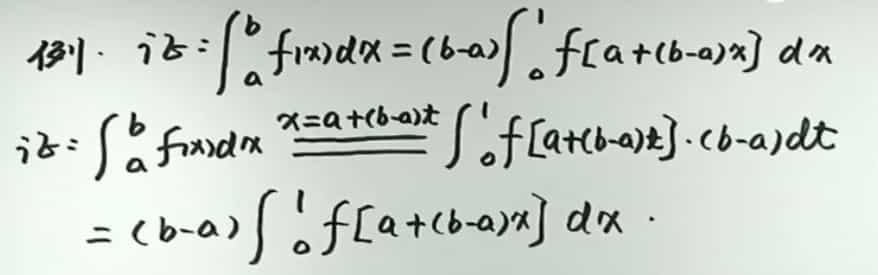 例. 证:∫_a^b f(x)dx = (b-a)∫_0^1 f[a+(b-a)x] dx
证:∫_a^b f(x)dx \xlongequal{x=a+(b-a)t} ∫_0^1 f[a+(b-a)t]·(b-a)dt
= (b-a)∫_0^1 f[a+(b-a)x] dx.